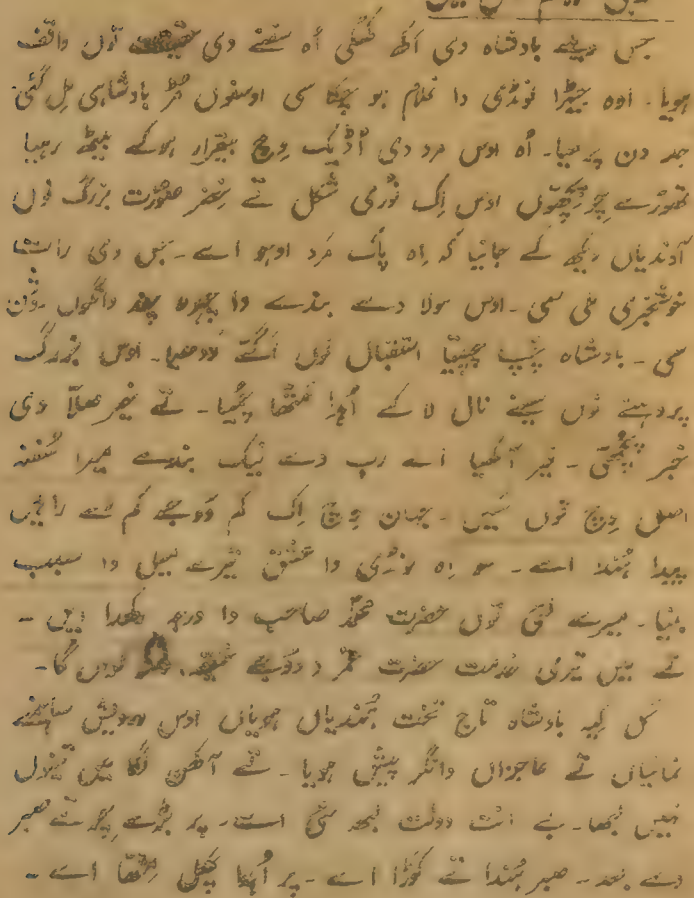 جس ویلے بادشاہ دی اکھ کھُلی اُہ سفنے دی حقیقت توں واقف
ہویا۔ اوہ جیہڑا لونڈی دا غلام ہو چکا سی اوسنوں مڑ بادشاہی مل گئی
جد دن چڑھیا۔ اُہ اوس مرد دی اُڈیک وِچ بیقرار ہوکے بیٹھ رہیا
تھوڑے چِر پچھوں اوس اِک نُوری شکل تے خضر صُورت بزرگ نوں
آوندیاں دیکھ کے جانیا کہ اِہ پاک مَرد اوہو اے۔ جس دی رات
خوشخبری ملی سی۔ اوس مولا دے بندے دا چہرہ چند وانگوں روشن
سی۔ بادشاہ چھیتی استقبال نوں اگے ودھیا۔ اوس بزرگ
پروہنے نوں سینے نال لا کے اُہدا متھا چُمیا۔ تے خیر صلّا دی
خبر پُچھی۔ فیر آکھیا اے رب دے نیک بندے میرا سُفنہ
اصل وِچ توں سَیں۔ جہان وِچ اِک کم دُوجے کم دے راہیں
پیدا ہُندا اے۔ سو اِہ لونڈی دا عشق تیرے میل دا سبب
بنیا۔ میرے لئی توں حضرت محمّد صاحب دا درجہ رکھدا ایں۔
تے میں تیری خدمت حضرت عُمر دُوجے خلیفہ وانگ کراں گا۔
گل کیہ بادشاہ تاج تخت ہُندیاں ہویاں اوس درویش سامنے
نمانیاں تے عاجزاں وانگر پیش ہویا۔ تے آکھن لگا میں تینوں
نہیں لبھا۔ بے انت دولت لبھ لئی اے۔ پر بڑے چِر تے صبر
دے بعد۔ صبر ہُندا تے کوڑا اے۔ پر اُہدا پھل مِٹھا اے۔